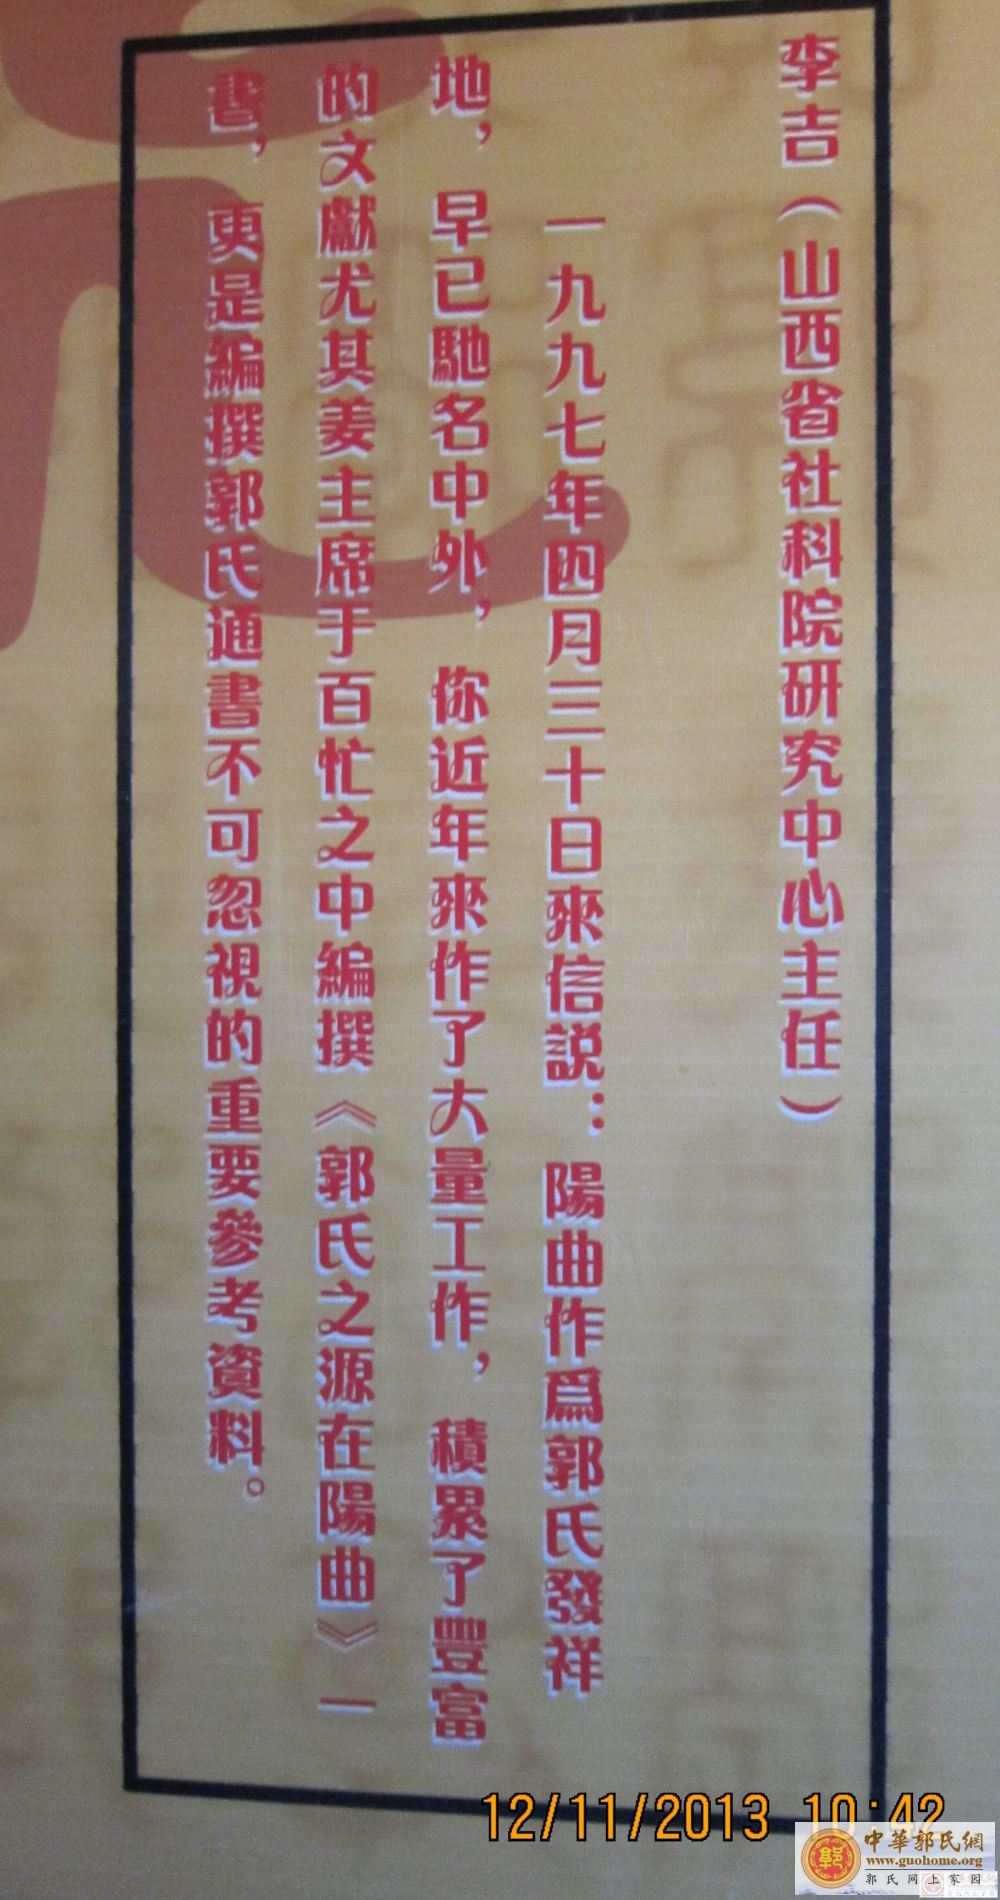 李吉（山西省社科院研究中心主任）
一九九七年四月三十日來信説：陽曲作爲郭氏發祥
地，早已馳名中外，你近年來作了大量工作，積累了豐富
的文獻尤其姜主席于百忙之中編撰《郭氏之源在陽曲》一
書，更是編撰郭氏通書不可忽視的重要參考資料。
12/11/2013 10:42
中華郭氏網
www.guohome.org
郭氏网上家园